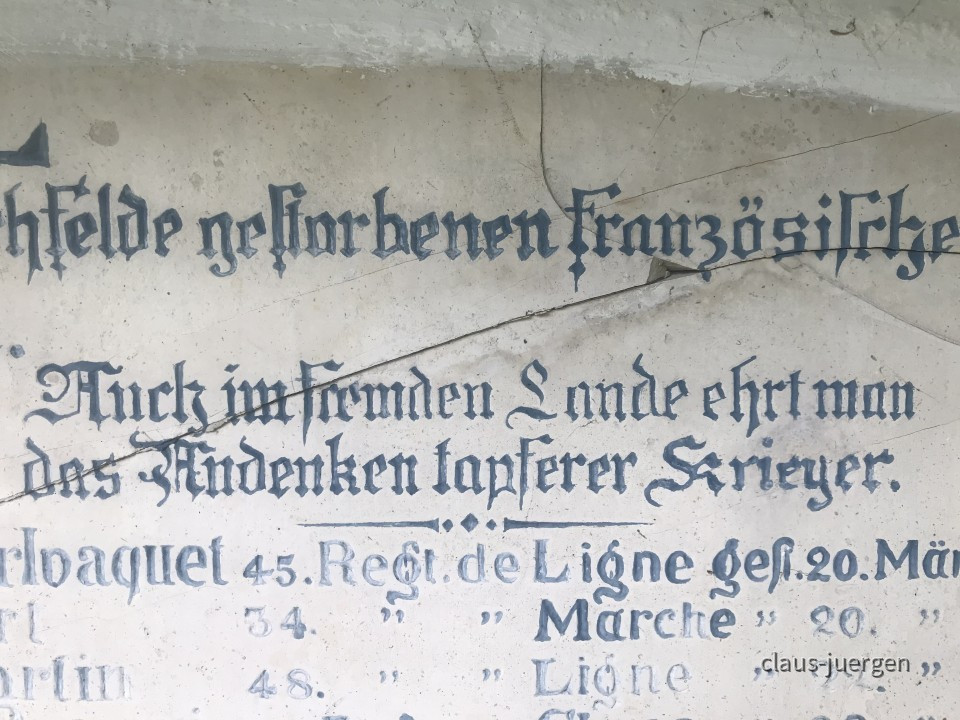 gestorbenen französische
Auch im fremden Lande ehrt man
das Andenken tapferer Krieger.
45. Regt. de Ligne gest. 20. Mär
34. " " Marche " 20. "
48. " " Ligne " 22. "
claus-juergen